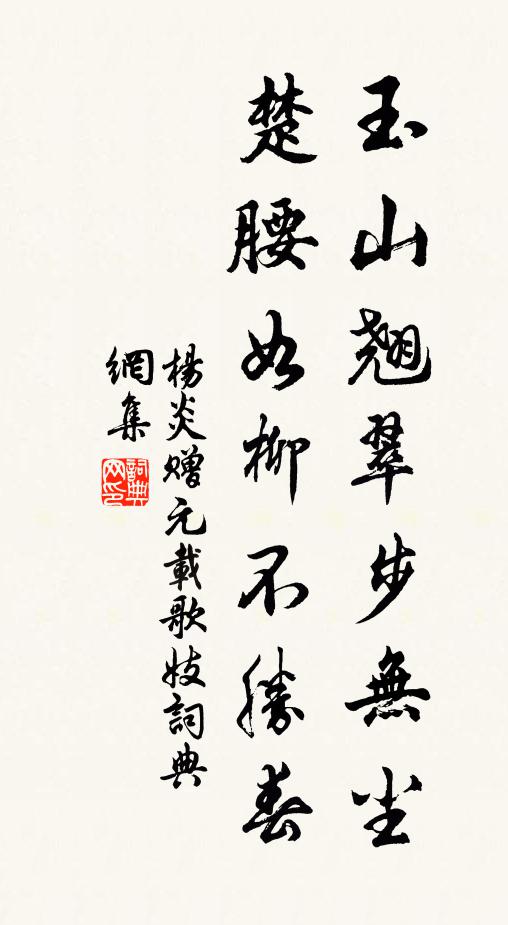 玉山翹翠步無尘
楚腰如柳不勝春
楊炎赠元載歌妓詞典
網集
詞典
网印